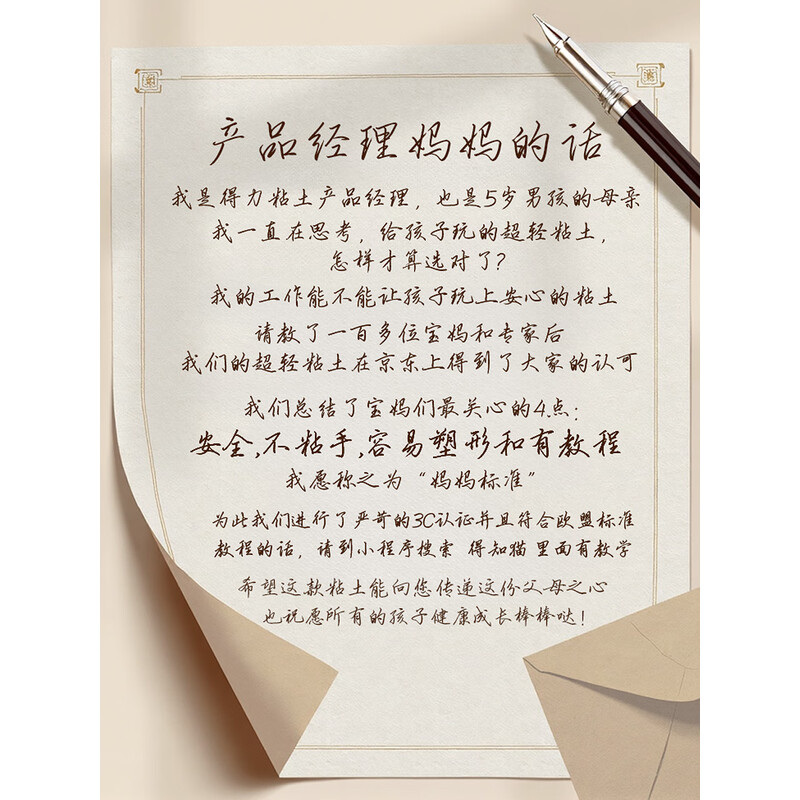 产品经理妈妈的话
我是得力粘土产品经理，也是5岁男孩的母亲
我一直在思考，给孩子玩的超轻粘土，
怎样才算选对了？
我的工作能不能让孩子玩上安心的粘土
请教了一百多位宝妈和专家后
我们的超轻粘土在京东上得到了大家的认可
我们总结了宝妈们最关心的4点：
安全,不粘手,容易塑形和有教程
我愿称之为“妈妈标准”
为此我们进行了严苛的3C认证并且符合欧盟标准
教程的话，请到小程序搜索 得知猫 里面有教学
希望这款粘土能向您传递这份父母之心
也祝愿所有的孩子健康成长棒棒哒！